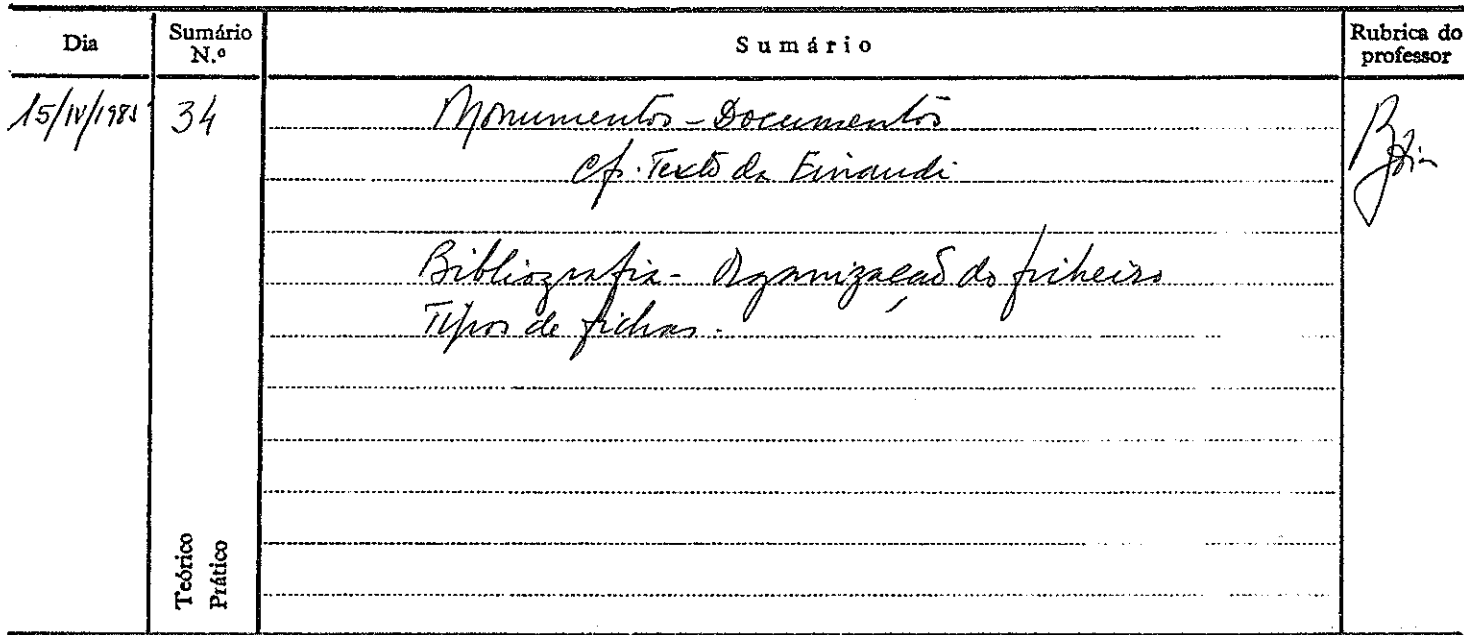 Dia
Sumário N.º
Sumário
Rubrica do professor
15/IV/198
34
Monumentos - Documentos
Cf. Texto da Einaudi
Bibliografia - Organização do ficheiro
Tipos de fichas.
Teórico
Prático